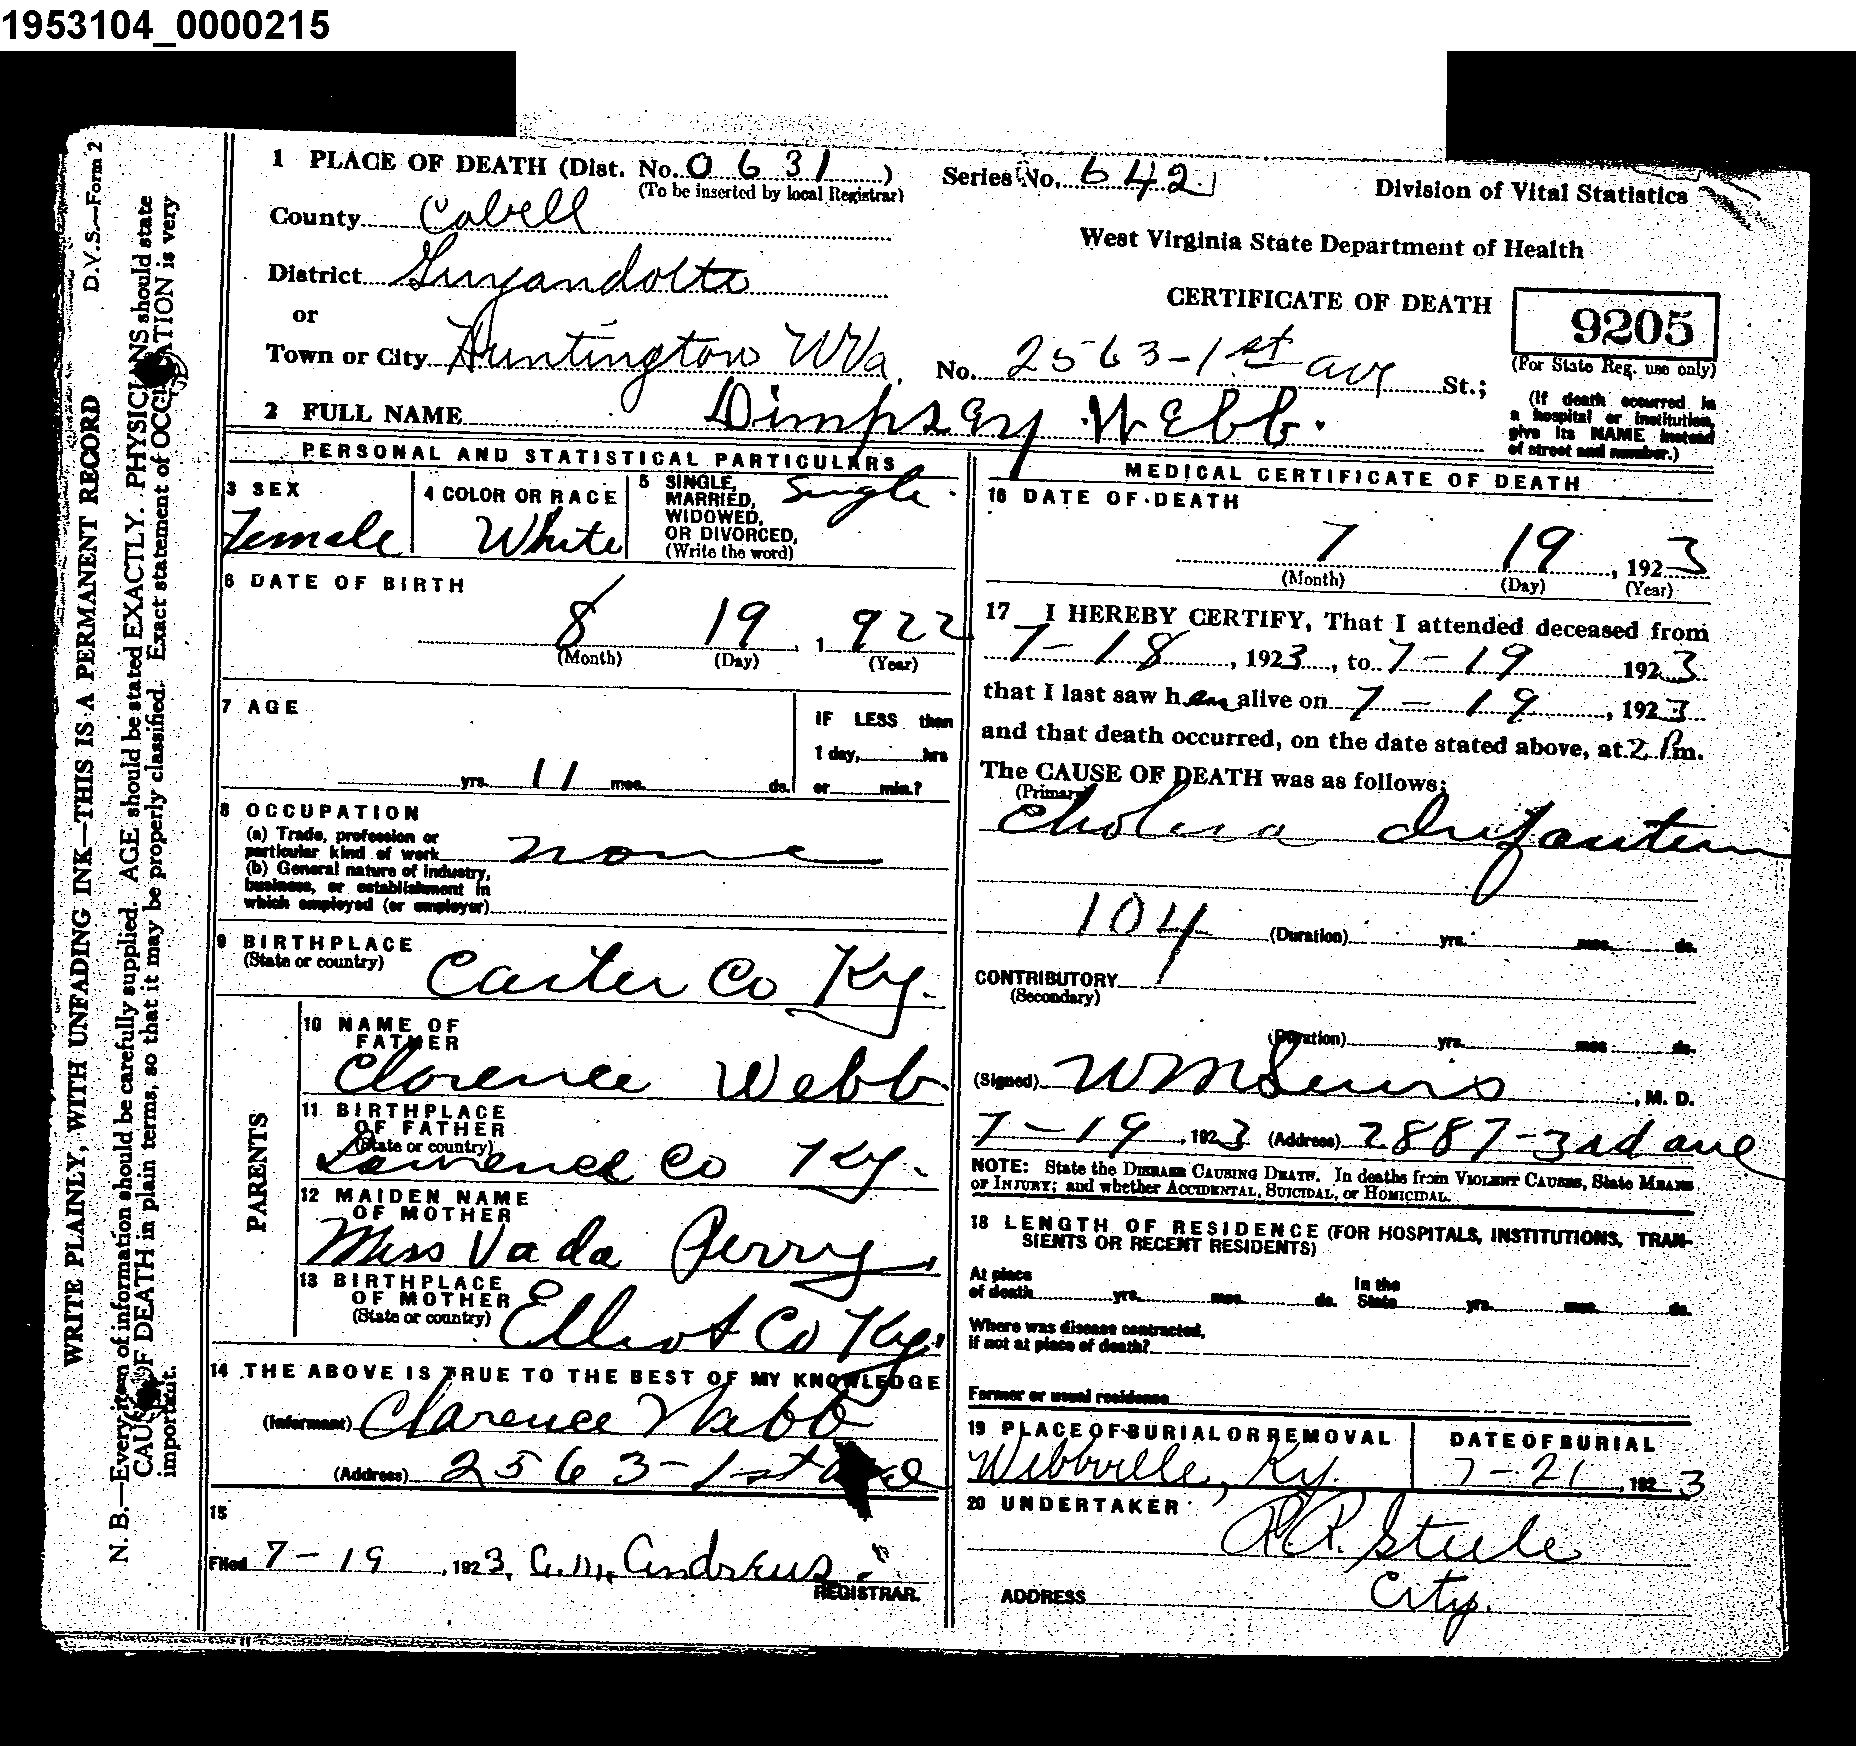 1953104_0000215
D.V.S.—Form 2
WRITE PLAINLY, WITH UNFADING INK—THIS IS A PERMANENT RECORD
N. B.—Every item of information should be carefully supplied. AGE should be stated EXACTLY. PHYSICIANS should state
CAUSE OF DEATH in plain terms, so that it may be properly classified. Exact statement of OCCUPATION is very
important.
1 PLACE OF DEATH (Dist. No. 0631)
(To be inserted by local Registrar)
Series No. 642
Division of Vital Statistics
County Cabell
West Virginia State Department of Health
District Guyandotte
CERTIFICATE OF DEATH
9205
(For State Reg. use only)
or
Town or City Huntington WVa. No. 2563-1st ave St.;
(If death occurred in
a hospital or institution,
give its NAME instead
of street and number.)
2 FULL NAME Dimpsey Webb.
PERSONAL AND STATISTICAL PARTICULARS
3 SEX
Female
4 COLOR OR RACE
White
5 SINGLE,
MARRIED,
WIDOWED,
OR DIVORCED,
(Write the word)
Single.
6 DATE OF BIRTH
8 19, 1922
(Month) (Day) (Year)
7 AGE
yrs. 11 mos. ds.
IF LESS than
1 day, hrs
or min.?
8 OCCUPATION
(a) Trade, profession or
particular kind of work none
(b) General nature of industry,
business, or establishment in
which employed (or employer)
9 BIRTHPLACE
(State or country)
Carter Co Ky.
PARENTS
10 NAME OF
FATHER
Clorence Webb.
11 BIRTHPLACE
OF FATHER
(State or country)
Lawrence Co Ky.
12 MAIDEN NAME
OF MOTHER
Miss Vada Perry,
13 BIRTHPLACE
OF MOTHER
(State or country)
Elliot Co Ky.
14 THE ABOVE IS TRUE TO THE BEST OF MY KNOWLEDGE
(Informant) Clarence Webb
(Address) 2563-1st ave
15
Filed 7-19, 1923, Andrews.
REGISTRAR.
MEDICAL CERTIFICATE OF DEATH
16 DATE OF DEATH
7 19, 1923
(Month) (Day) (Year)
17 I HEREBY CERTIFY, That I attended deceased from
7-18, 1923, to 7-19 1923
that I last saw h er alive on 7-19, 1923
and that death occurred, on the date stated above, at 2 Pm.
The CAUSE OF DEATH was as follows:
(Primary)
Cholera Infantum
104 (Duration) yrs. mos. ds.
CONTRIBUTORY
(Secondary)
(Duration) yrs. mos ds.
(Signed) , M. D.
7-19, 1923 (Address) 2887-3rd ave
NOTE: State the DISEASE CAUSING DEATH. In deaths from VIOLENT CAUSES, State MEANS
OF INJURY; and whether ACCIDENTAL, SUICIDAL, or HOMICIDAL.
18 LENGTH OF RESIDENCE (FOR HOSPITALS, INSTITUTIONS, TRAN-
SIENTS OR RECENT RESIDENTS)
At place
of death yrs. mos. ds.
In the
State yrs. mos. ds.
Where was disease contracted,
if not at place of death?
Former or usual residence
19 PLACE OF BURIAL OR REMOVAL
Webbville, Ky.
DATE OF BURIAL
7-21, 1923
20 UNDERTAKER
R.R. Steele
ADDRESS City.